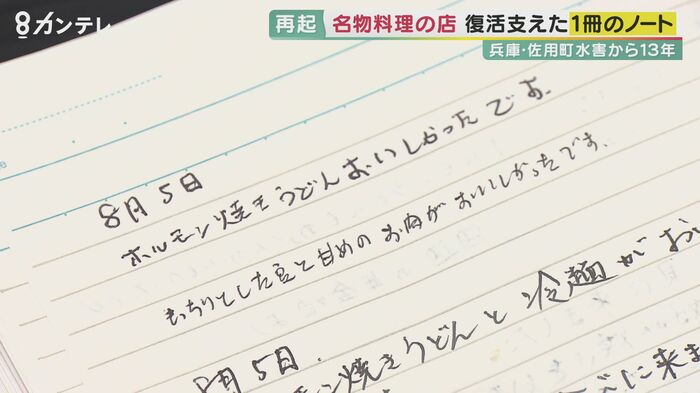 8カンテレ
再起 名物料理の店 復活支えた1冊のノート
兵庫・佐用町水害から13年
8月5日
ホルモン焼きうどんおいしかったです。
もっちりとした と甘めのお肉がおいしかったです。
8月5日.
モン焼きうどんと冷麺がおい
べに来ま